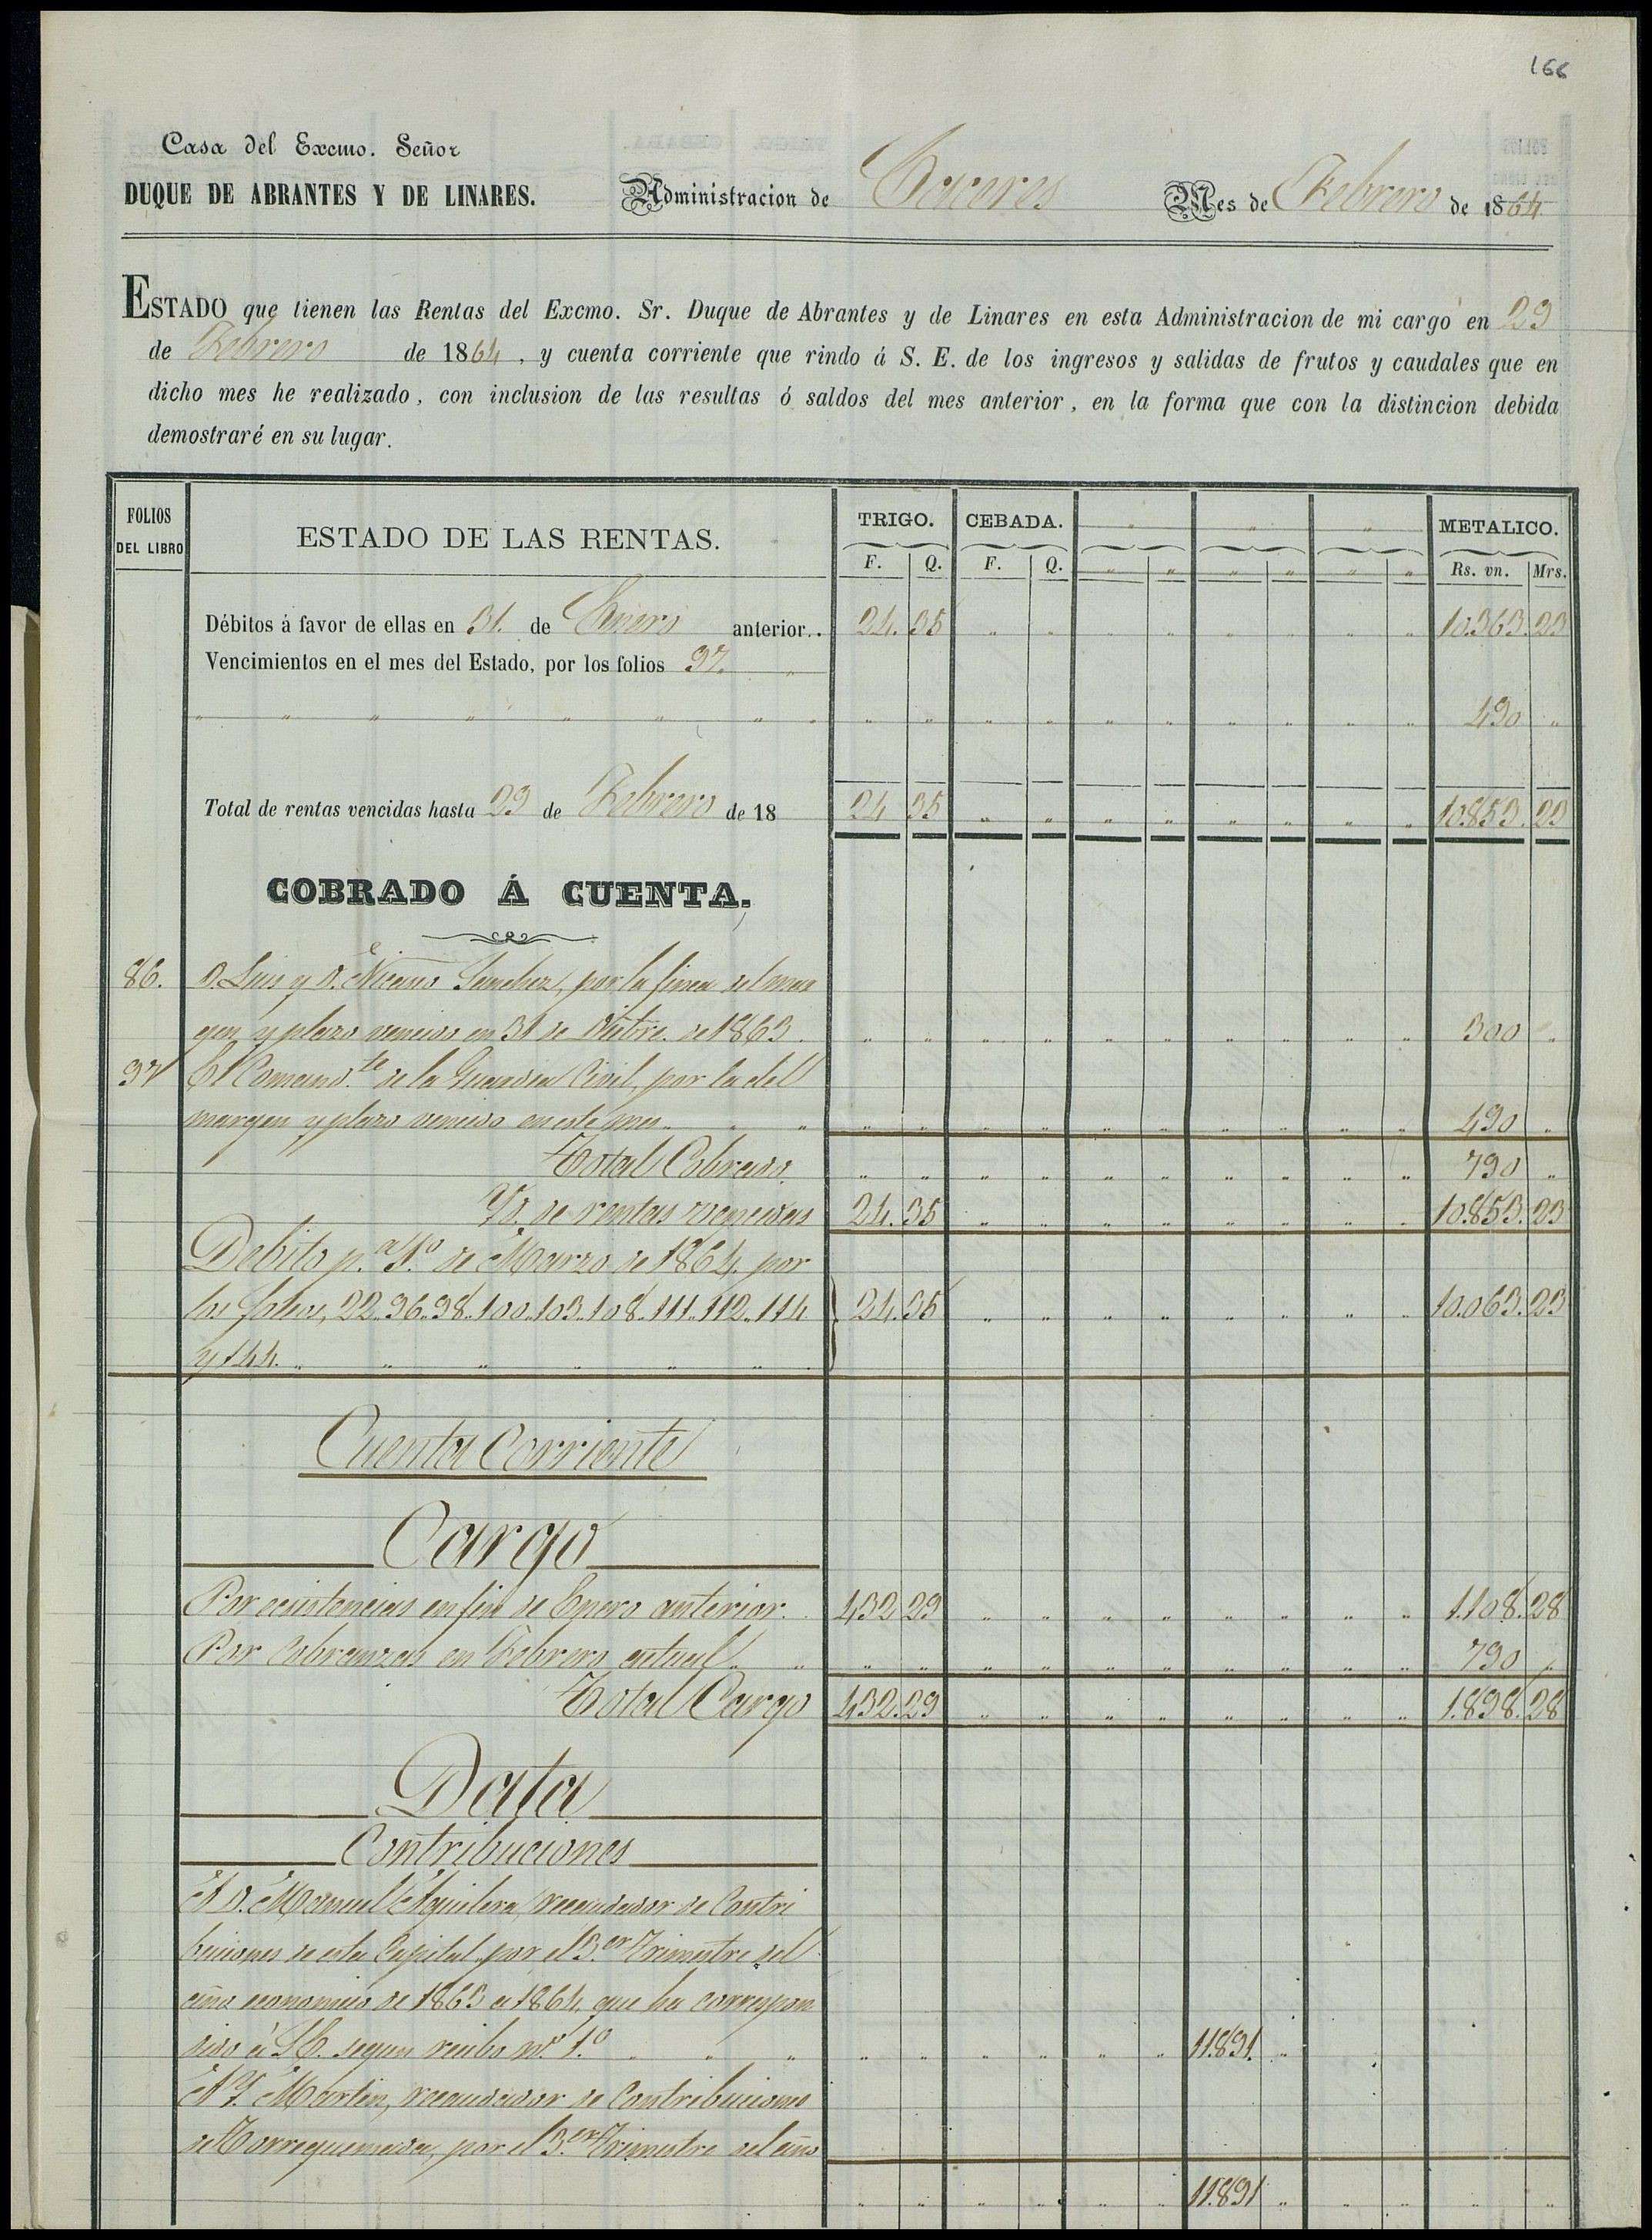 166
Casa del Excmo. Señor
DUQUE DE ABRANTES Y DE LINARES.
Administracion de Caceres Mes de Febrero de 1864.
ESTADO que tienen las Rentas del Excmo. Sr. Duque de Abrantes y de Linares en esta Administracion de mi cargo en 29
de Febrero de 1864, y cuenta corriente que rindo á S. E. de los ingresos y salidas de frutos y caudales que en
dicho mes he realizado, con inclusion de las resultas ó saldos del mes anterior, en la forma que con la distincion debida
demostraré en su lugar.
FOLIOS DEL LIBRO ESTADO DE LAS RENTAS. TRIGO. CEBADA. " " " METALICO.
F. Q. F. Q. " " " " " " Rs. vn. Mrs.
Débitos á favor de ellas en 31. de Enero anterior.. 24. 35 " " " " " " " " 10.363. 23
Vencimientos en el mes del Estado, por los folios 97. "
" " " " " " " " " " " " " " " " " " 490 "
Total de rentas vencidas hasta 29 de Febrero de 18 24 35 " " " " " " " " 10.853. 23
COBRADO Á CUENTA.
86. D. Luis y D. Nicanor Sanchez, por la finca del mar
gen y plazo vencido en 31 de Dicbre. de 1863. " " " " " " " " " " 300 "
97 El Comand.te de la Guardia Civil, por la del
margen y plazo vencido en este mes. " " " " " " " " " " " " 490 "
Total Cobrado. " " " " " " " " " " 790 "
Yd. de rentas vencidas 24. 35 " " " " " " " " 10.853. 23
Debito p.a 1.o de Marzo de 1864, por
los folios, 22..96..98..100..103..108..111..112..114 24. 35 " " " " " " " " 10.063. 23
y 144. " " " " " "
Cuenta Corriente
Cargo
Por existencias en fin de Enero anterior. 432 29 " " " " " " " " 1.108. 28
Por Cobranzas en Febrero actual " " " " " " " " " " " " 790 "
Total Cargo 432. 29 " " " " " " " " 1.898. 28
Data
Contribuciones
A D. Manuel Aguilera, recaudador de Contri
buciones de esta Capital, por el 3.er Trimestre del
año economico de 1863 a 1864, que ha correspon
dido á S.E. segun recibo no. 1.o " " " " " " " " " 11.891. "
A Y. Martin, recaudador de Contribuciones
de Torrequemada, por el 3.er Trimestre del año
" " " " " " 11.891 " " " " "